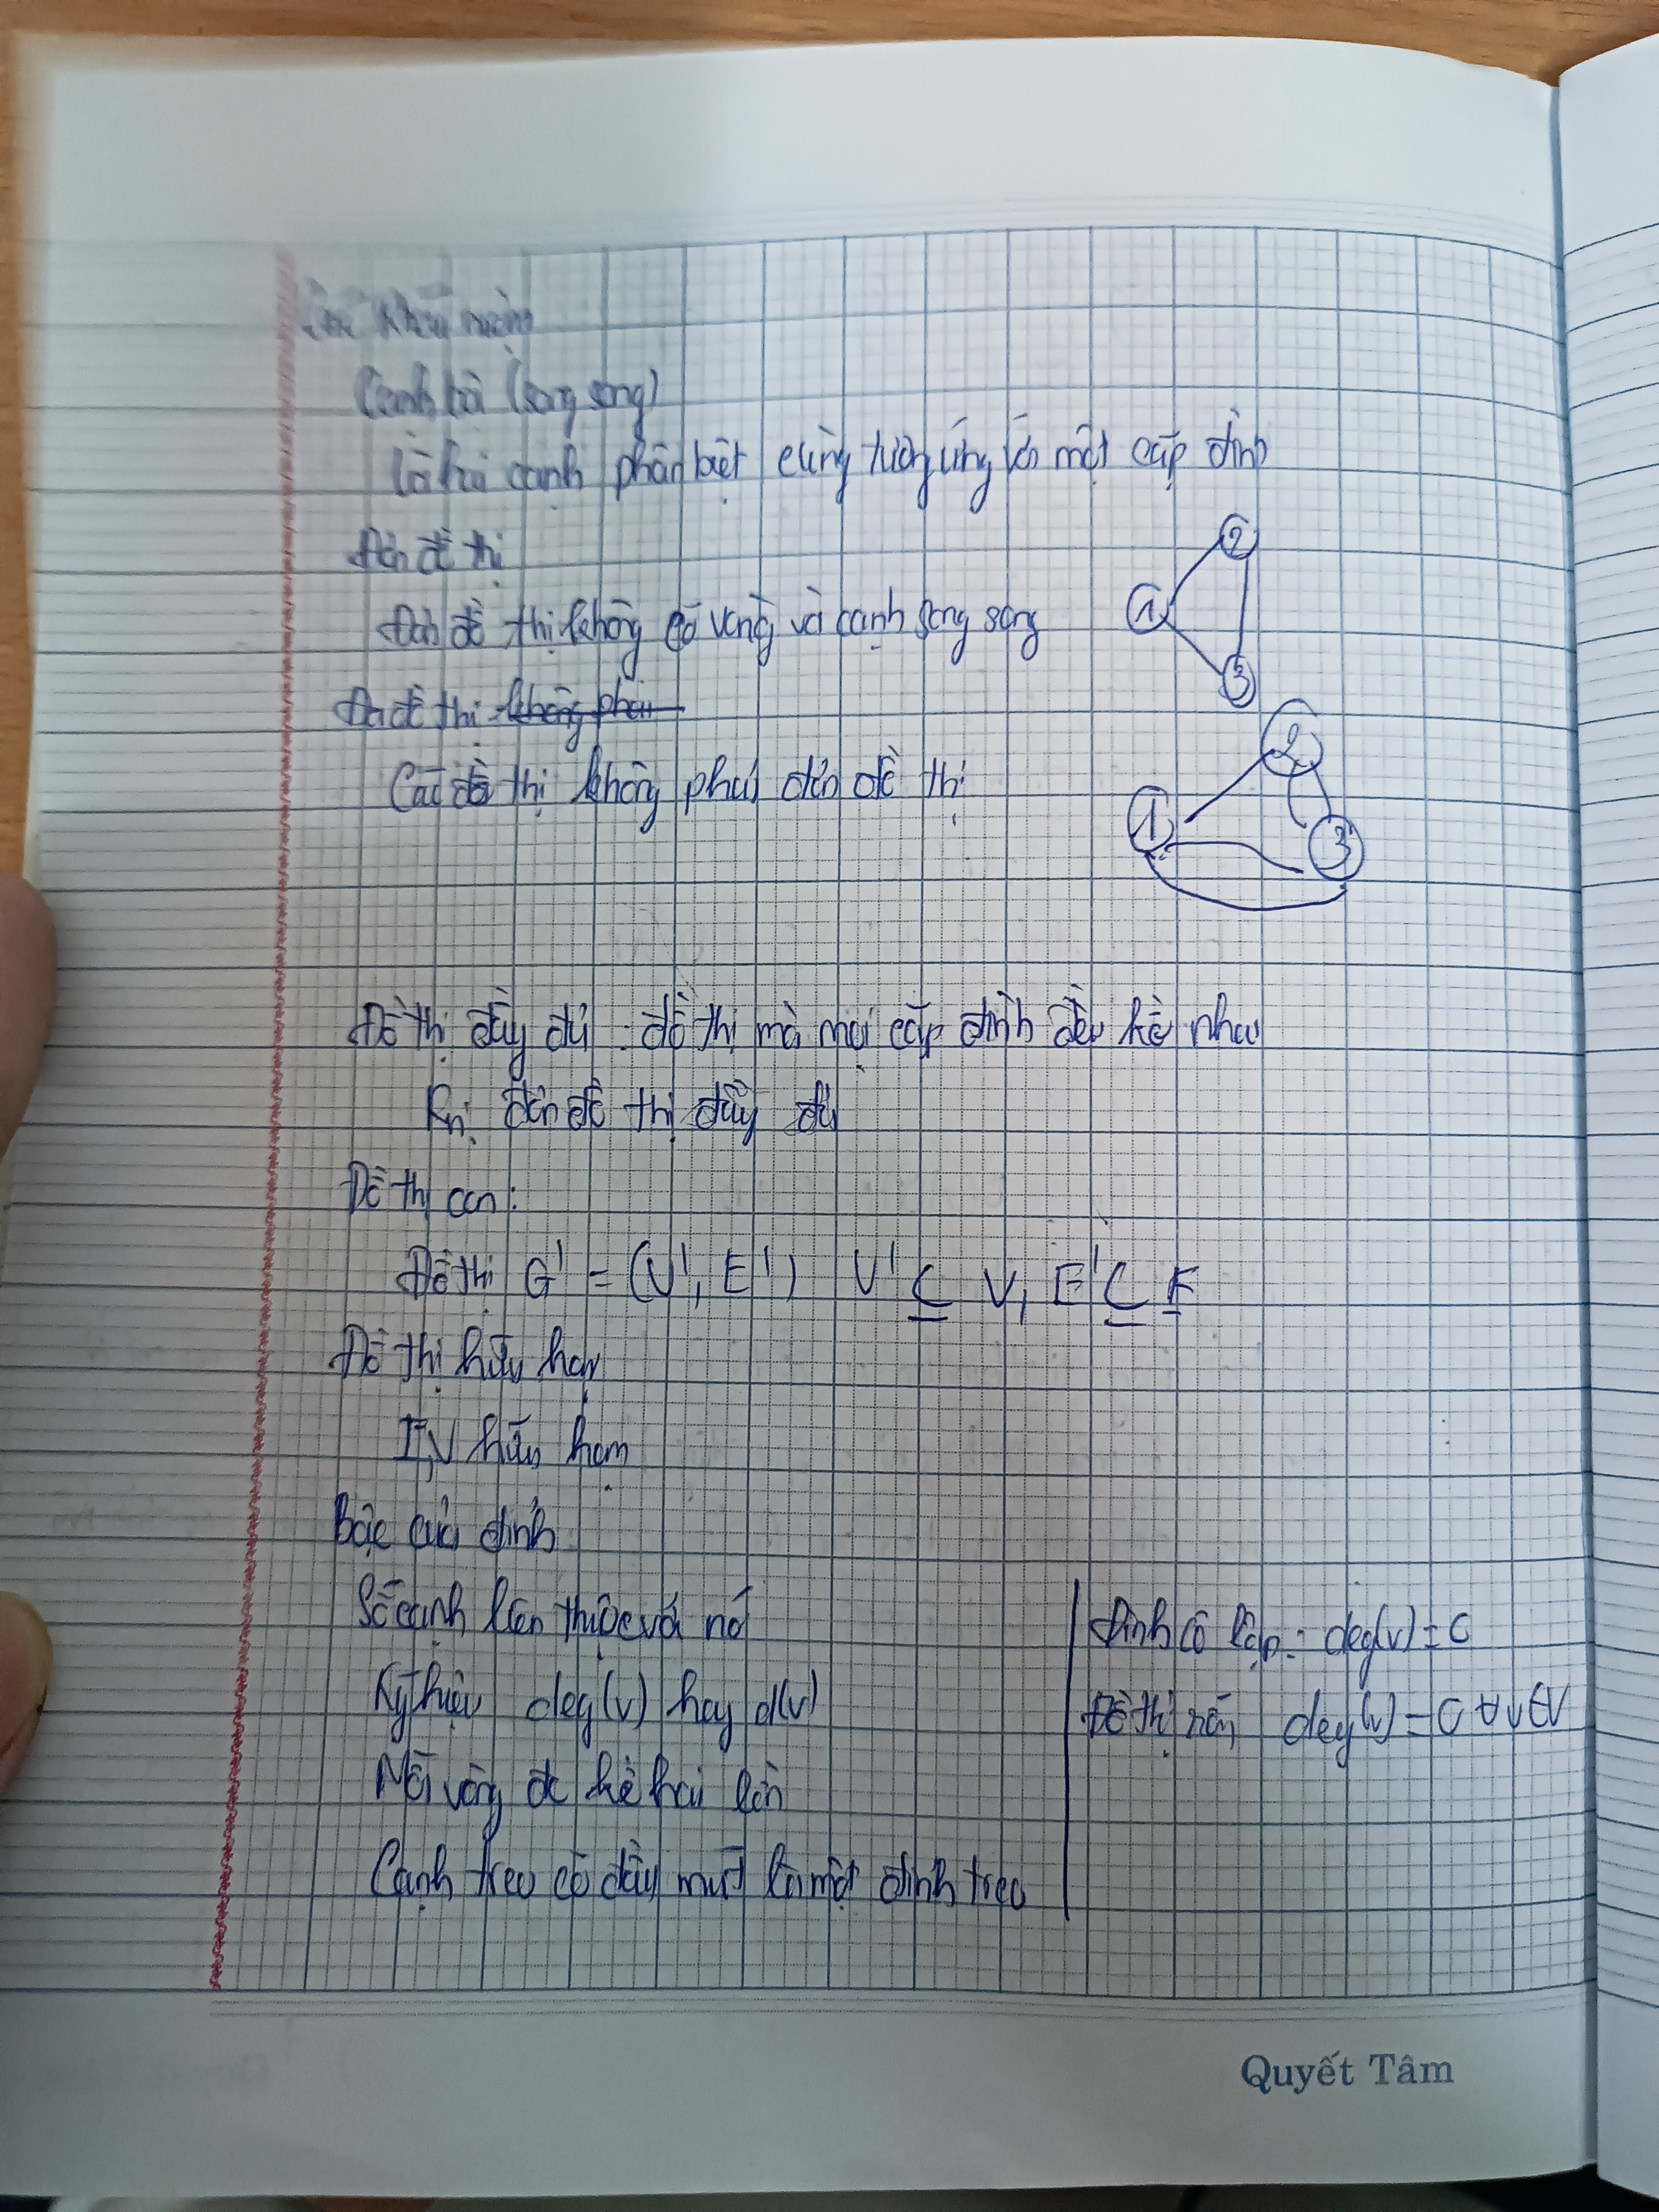 Các khái niệm
Cạnh bội (song song)
Là hai cạnh phân biệt cùng tương ứng với một cặp đỉnh
Đơn đồ thị
Đơn đồ thị không có vòng và cạnh song song
2
1
3
Đa đồ thị không phải
Các đồ thị không phải đơn đồ thị
2
1
3
Đồ thị đầy đủ : đồ thị mà mọi cặp đỉnh đều kề nhau
Kn: đơn đồ thị đầy đủ
Đồ thị con:
Đồ thị G' = (V', E') V' ⊆ V, E' ⊆ E
Đồ thị hữu hạn
E,V hữu hạn
Bậc của đỉnh
Số cạnh liên thuộc với nó
Ký hiệu deg(v) hay d(v)
Mỗi vòng đc kể hai lần
Cạnh treo có đầy mút là một đỉnh treo
Đỉnh cô lập: deg(v) = 0
Đồ thị rỗng deg(v) = 0 ∀ v ∈ V
Quyết Tâm